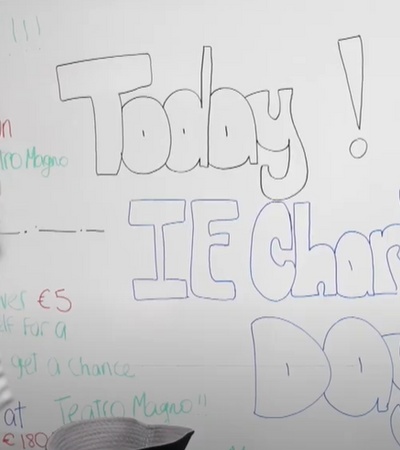 !!!
Today !
Magno
IE Char
€5
for a
Da
get a chance
at Teatro Magno"
€180